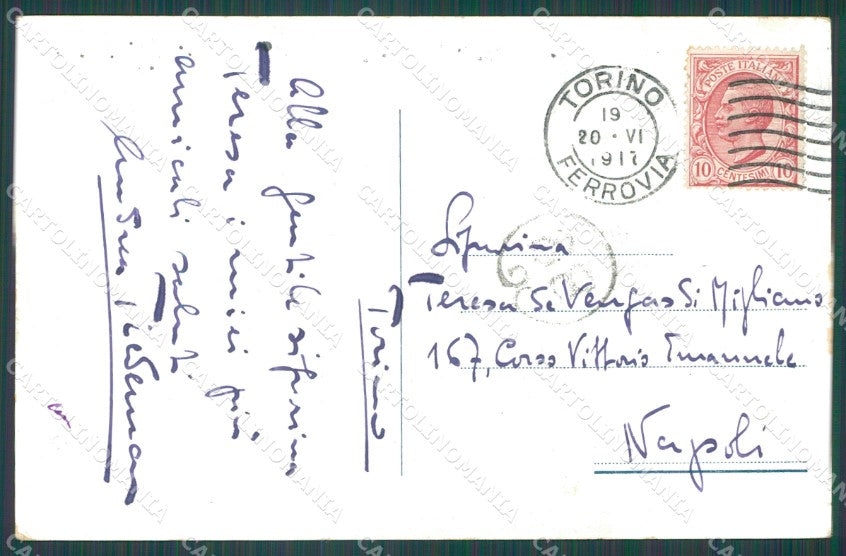 Alla gentile signorina
Teresa i miei più
amicali saluti
Andrea
Torino
TORINO
19
20 · VI
1917
FERROVIA
POSTE ITALIANE
10 CENTESIMI 10
Signorina
Teresa De Vengas Di Migliano
167, Corso Vittorio Emanuele
Napoli
CARTOLINOMANIA